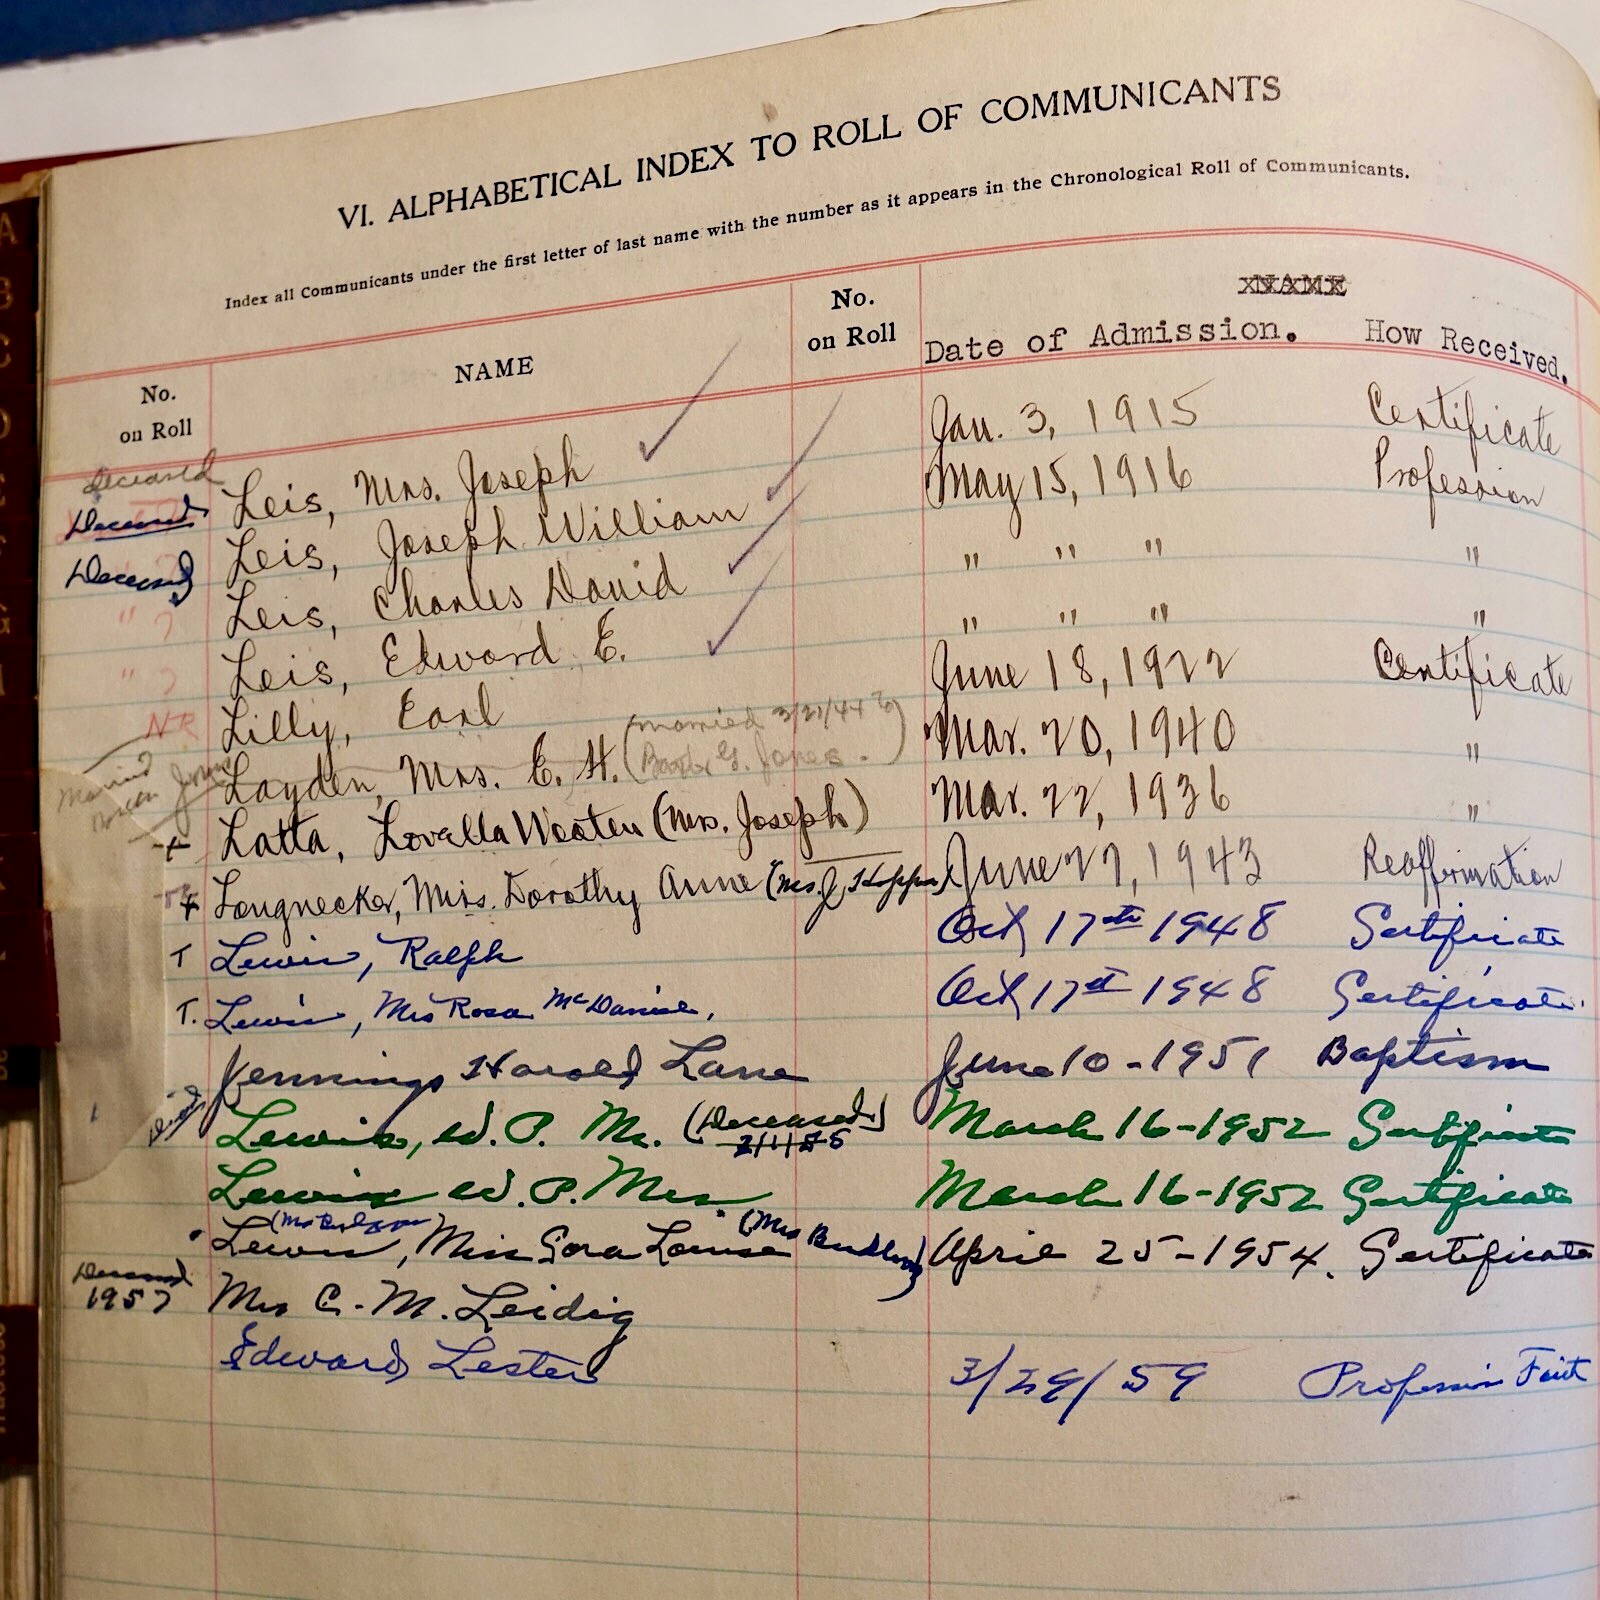 VI. ALPHABETICAL INDEX TO ROLL OF COMMUNICANTS
Index all Communicants under the first letter of last name with the number as it appears in the Chronological Roll of Communicants.
No. on Roll NAME No. on Roll NAME
Date of Admission. How Received.
Deceased Leis, Mrs. Joseph Jan. 3, 1915 Certificate
Deceased Leis, Joseph William May 15, 1916 Profession
Deceased Leis, Charles David " " " "
" ? Leis, Edward E. " " " "
" ? Lilly, Earl June 18, 1922 Certificate
NR Layden, Mrs. E. H. (married 3/21/44 to G. Jones.) Mar. 20, 1940 "
Married
Latta, Lovella Wooten (Mrs. Joseph) Mar. 22, 1936 "
Longnecker, Miss. Dorothy Anne (Mrs. J. ) June 27, 1943 Reaffirmation
T Lewis, Ralph Oct 17th 1948 Certificate
T. Lewis, Mrs Rosa McDaniel, Oct 17th 1948 Certificate
Jennings Harold Lane June 10-1951 Baptism
Lewis, W. P. Mr. (Deceased) March 16-1952 Certificate
Lewis W. P. Mrs March 16-1952 Certificate
Lewis, Miss Louise (Mrs ) April 25-1954. Certificate
Deceased 1957 Mrs C. M. Leidig
Edward Lester 3/29/59 Profession Faith